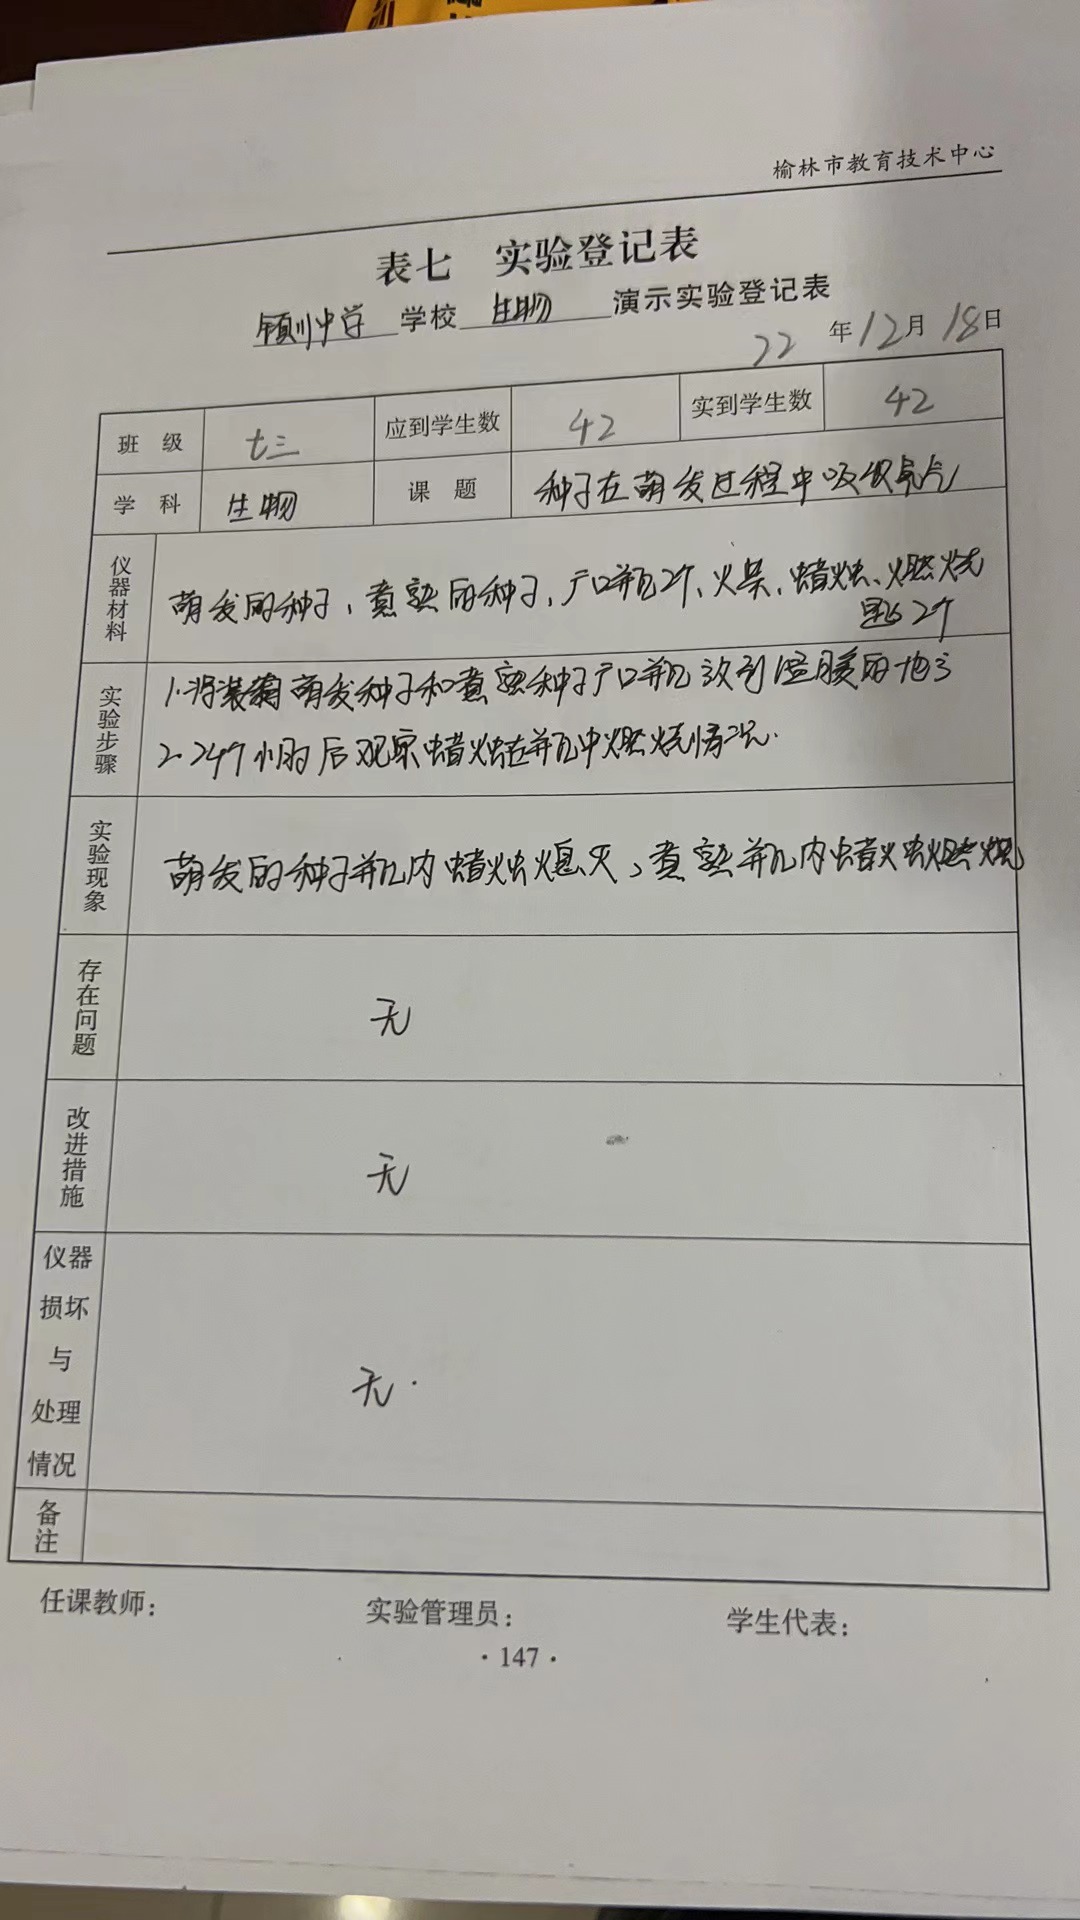 榆林市教育技术中心
表七 实验登记表
镇川中学 学校 生物 演示实验登记表
22 年 12 月 18 日
班 级 七三 应到学生数 42 实到学生数 42
学 科 生物 课 题 种子在萌发过程中吸收氧气
仪器材料 萌发的种子、煮熟的种子、广口瓶2个、火柴、蜡烛、燃烧
匙2个
实验步骤 1.将装有萌发种子和煮熟种子广口瓶放到温暖的地方
2.24个小时后观察蜡烛在瓶中燃烧情况.
实验现象 萌发的种子瓶内蜡烛熄灭,煮熟瓶内蜡烛燃烧
存在问题 无
改进措施 无
仪器
损坏
与
处理
情况
无.
备注
任课教师: 实验管理员: 学生代表:
·147·